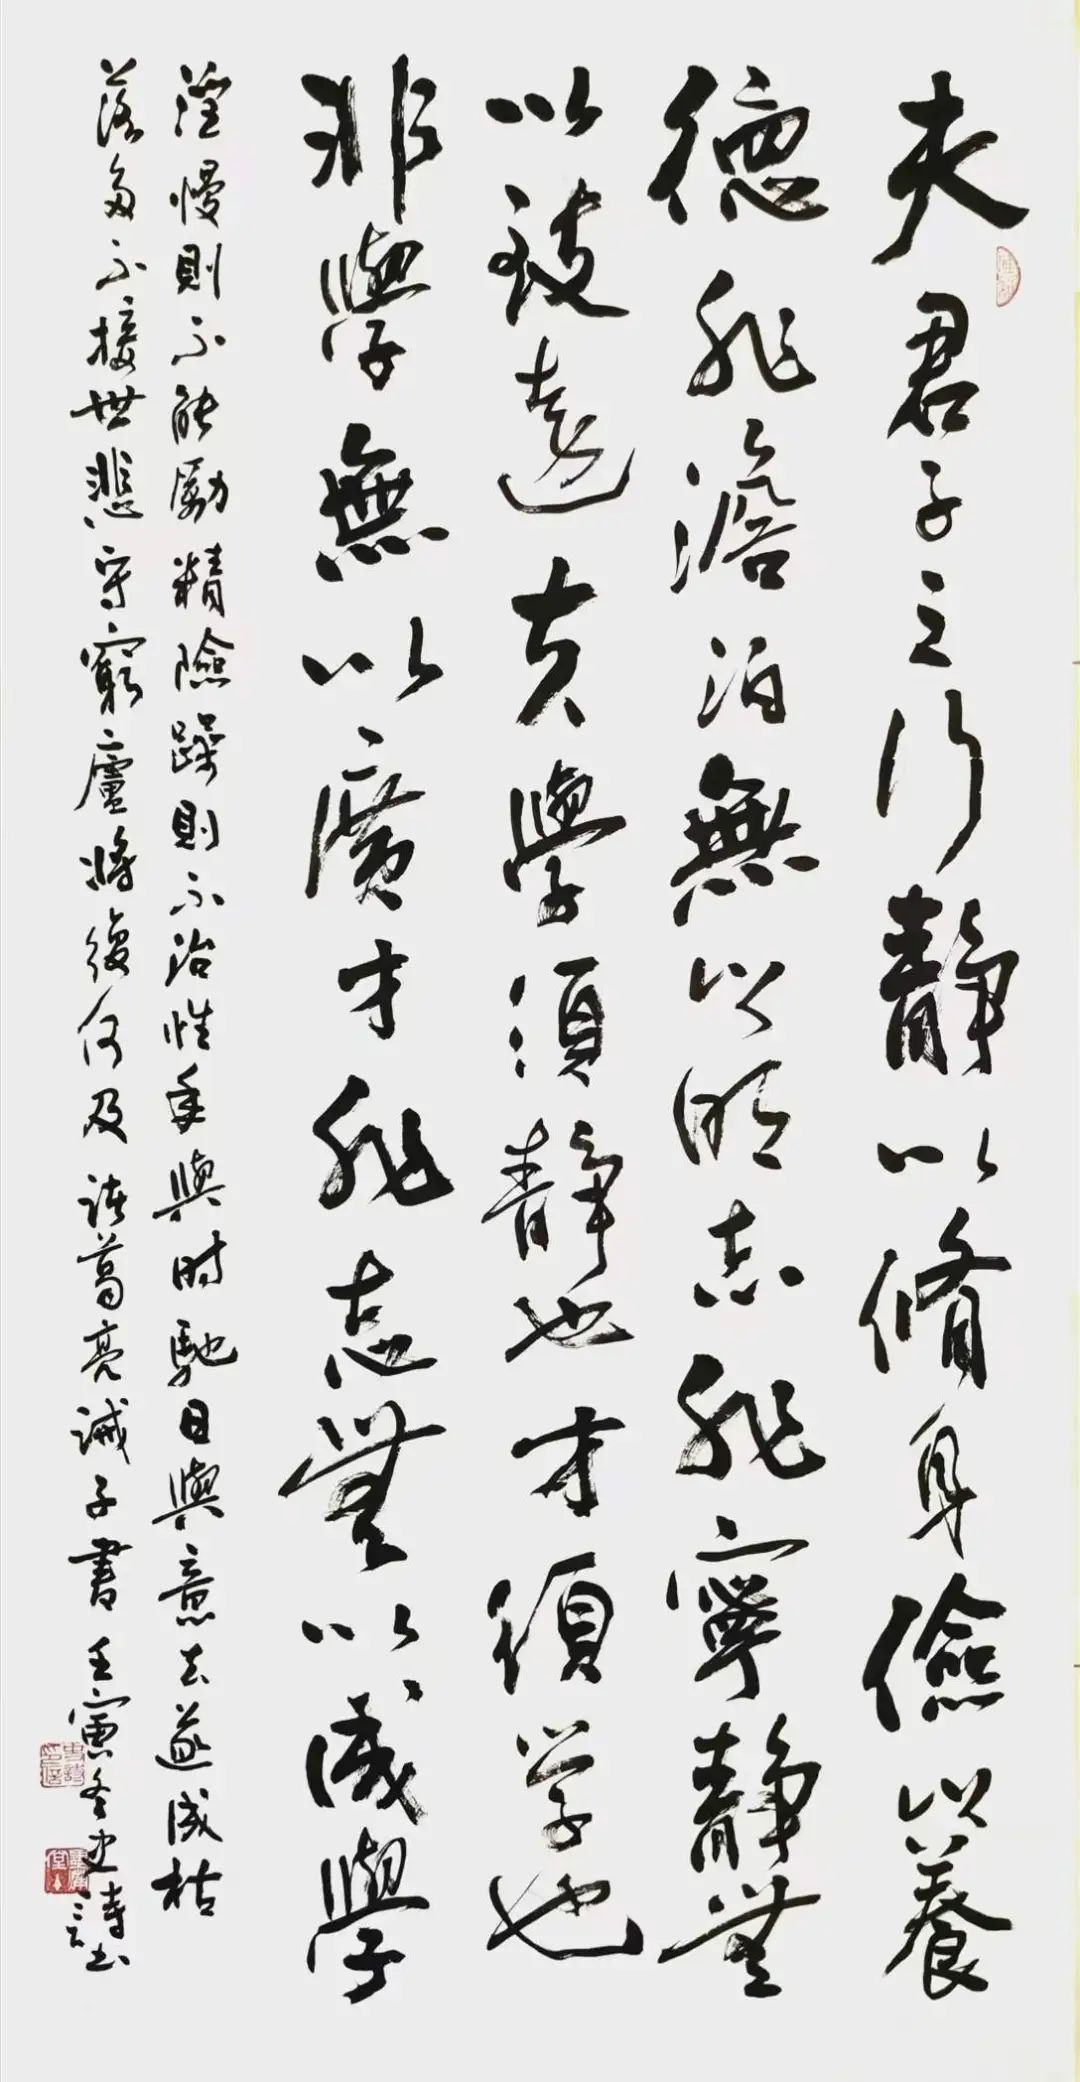 夫君子之行靜以脩身儉以養
德非澹泊無以明志非寧靜無
以致遠夫學須靜也才須学也
非學無以廣才非志無以成學
淫慢則不能勵精險躁則不治性年與時馳日與意去遂成枯
落多不接世悲守窮廬將復何及 諸葛亮誡子書 壬寅冬史詩书